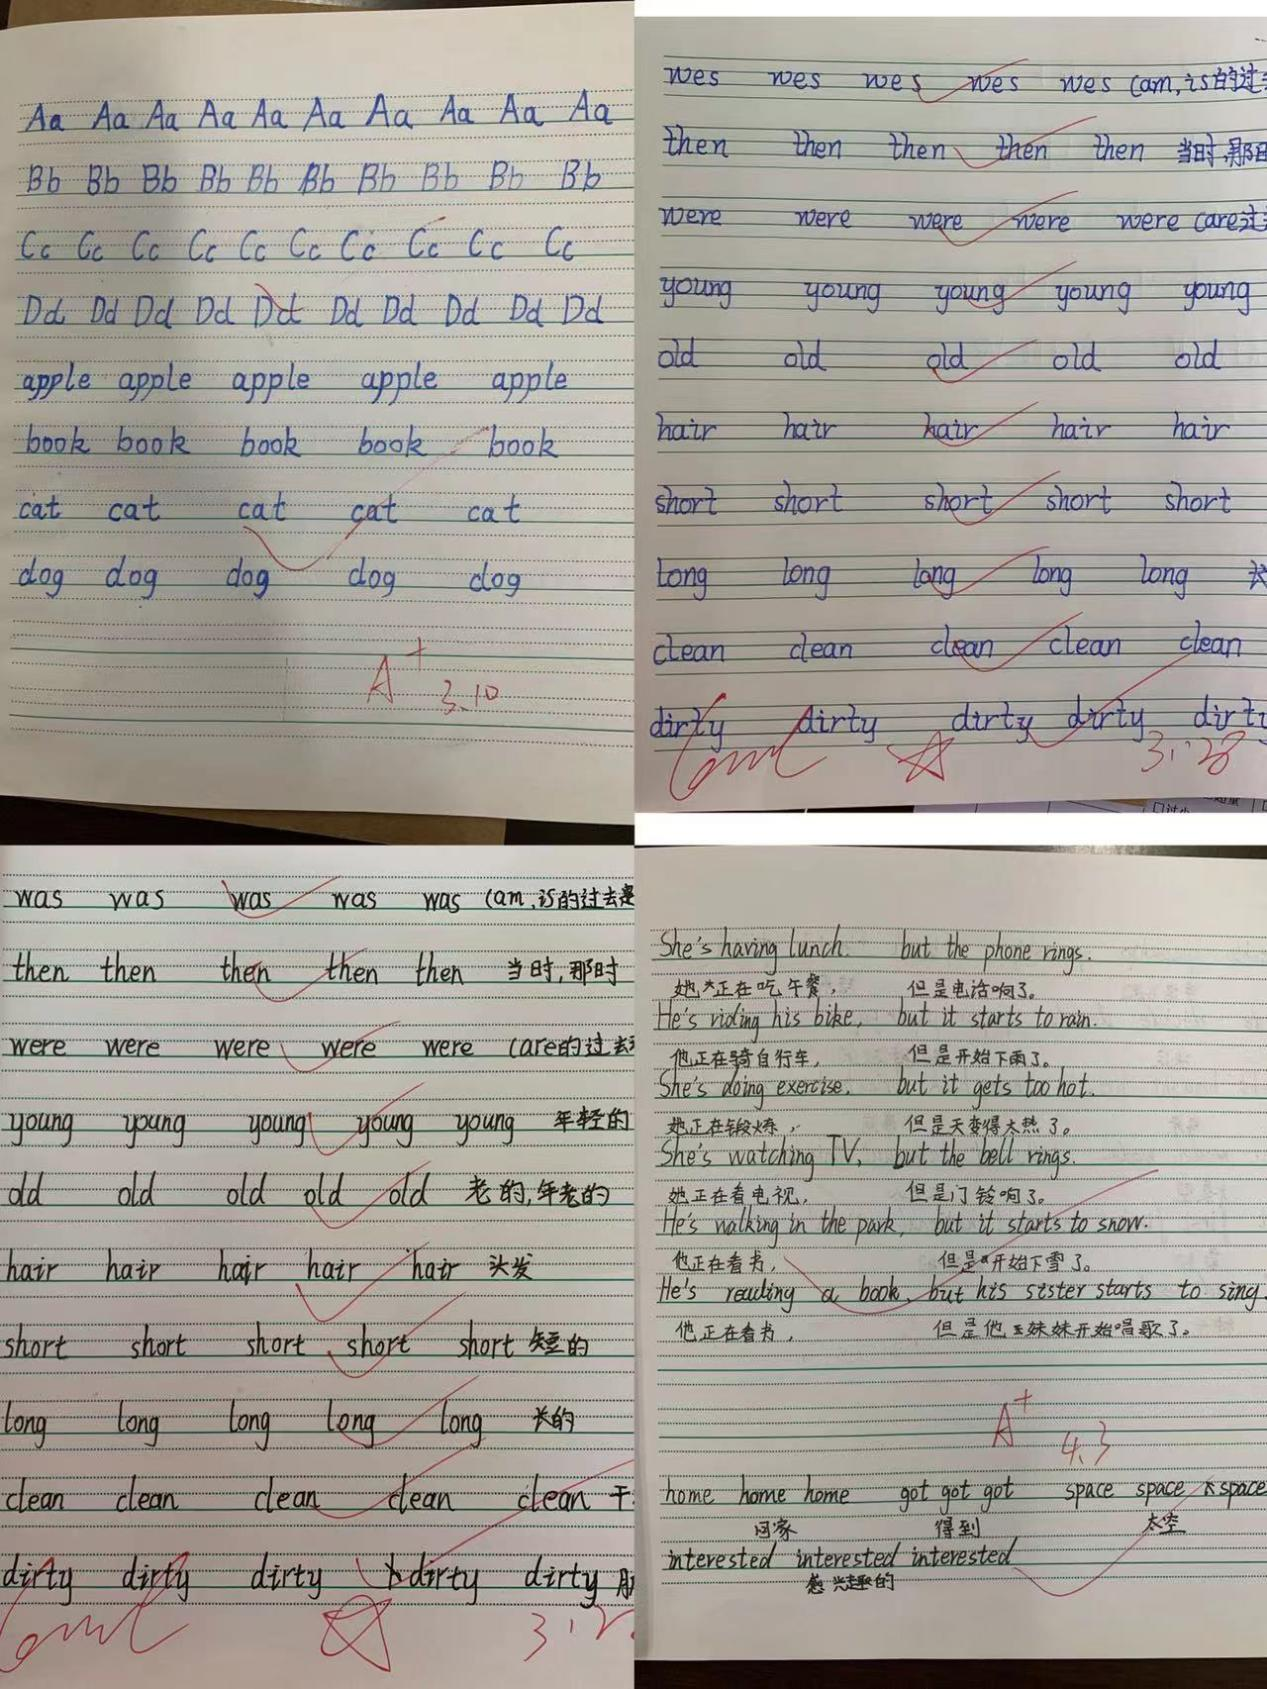 Aa Aa Aa Aa Aa Aa Aa Aa Aa Aa
Bb Bb Bb Bb Bb Bb Bb Bb Bb Bb
Cc Cc Cc Cc Cc Cc Cc Cc Cc Cc
Dd Dd Dd Dd Dd Dd Dd Dd Dd Dd
apple apple apple apple apple
book book book book book
cat cat cat cat cat
dog dog dog dog dog
A+
3.10
wes wes wes wes wes (am,is的过
then then then then then 当时,那
were were were were were (are过
young young young young young
old old old old old
hair hair hair hair hair
short short short short short
long long long long long 长
clean clean clean clean clean
dirty dirty dirty dirty dirty
3.28
was was was was was (am,is的过去
then then then then then 当时,那时
were were were were were (are的过去
young young young young young 年轻的
old old old old old 老的,年老的
hair hair hair hair hair 头发
short short short short short 短的
long long long long long 长的
clean clean clean clean clean 干
dirty dirty dirty dirty dirty
3.2
She's having lunch. but the phone rings.
她正在吃午餐, 但是电话响了。
He's riding his bike, but it starts to rain.
他正在骑自行车, 但是开始下雨了。
She's doing exercise. but it gets too hot.
她正在锻炼, 但是天变得太热了。
She's watching TV, but the bell rings.
她正在看电视, 但是门铃响了。
He's walking in the park, but it starts to snow.
他正在看书, 但是开始下雪了。
He's reading a book, but his sister starts to sing.
他正在看书, 但是他妹妹开始唱歌了。
A+
4.3
home home home got got got space space space
回家 得到 太空
interested interested interested
感兴趣的